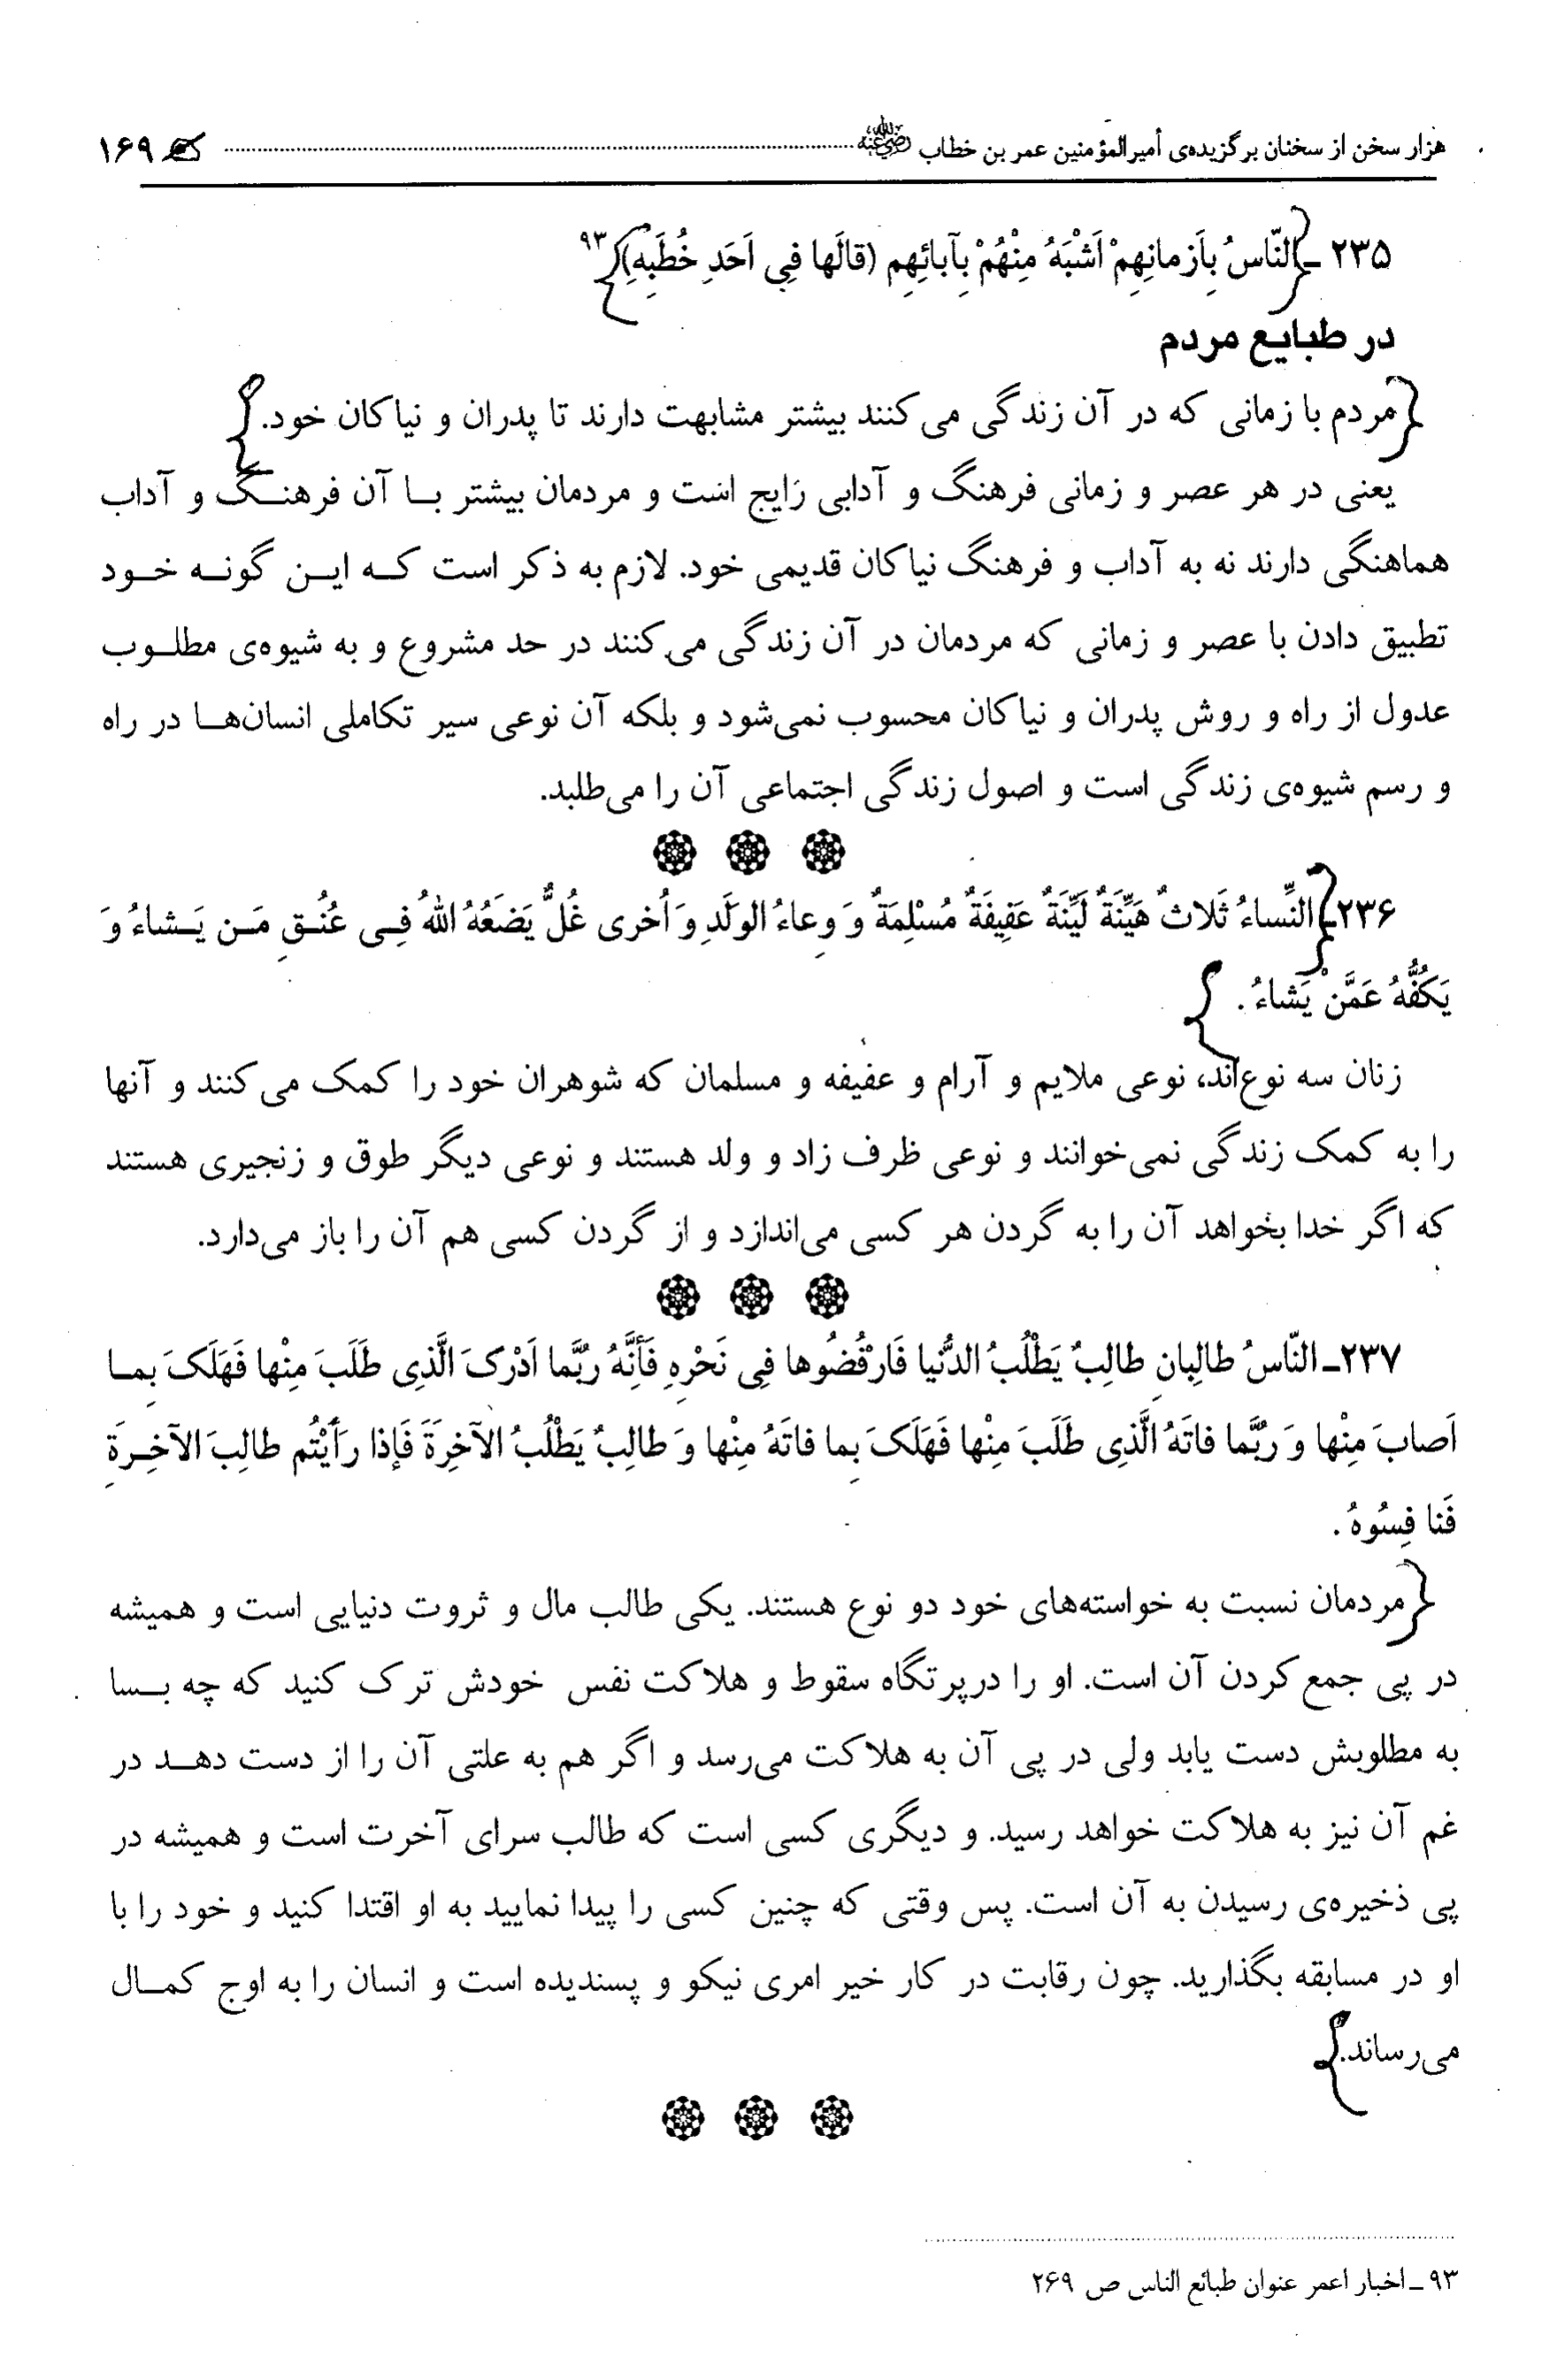 هزار سخن از سخنان برگزیده‌ی أمیرالمؤمنین عمر بن خطاب رضی الله عنه ۱۶۹
۲۳۵ ـ النّاسُ بِاَزمانِهِمْ اَشْبَهُ مِنْهُمْ بِآبائِهِم (قالَها فِی اَحَدِ خُطَبِهِ)۹۳
در طبایع مردم
مردم با زمانی که در آن زندگی می‌کنند بیشتر مشابهت دارند تا پدران و نیاکان خود.
یعنی در هر عصر و زمانی فرهنگ و آدابی رایج است و مردمان بیشتر بـا آن فرهنـگ و آداب
هماهنگی دارند نه به آداب و فرهنگ نیاکان قدیمی خود. لازم به ذکر است کـه ایـن گونـه خـود
تطبیق دادن با عصر و زمانی که مردمان در آن زندگی می‌کنند در حد مشروع و به شیوه‌ی مطلـوب
عدول از راه و روش پدران و نیاکان محسوب نمی‌شود و بلکه آن نوعی سیر تکاملی انسان‌هـا در راه
و رسم شیوه‌ی زندگی است و اصول زندگی اجتماعی آن را می‌طلبد.
۲۳۶ـ النِّساءُ ثَلاثٌ هَیِّنَةٌ لَیِّنَةٌ عَفِیفَةٌ مُسْلِمَةٌ وَ وِعاءُ الوَلَدِ وَ اُخری غُلٌّ یَضَعُهُ اللهُ فِـی عُنُـقِ مَـن یَـشاءُ وَ
یَکُفُّهُ عَمَّنْ یَشاءُ.
زنان سه نوع‌اند، نوعی ملایم و آرام و عفیفه و مسلمان که شوهران خود را کمک می‌کنند و آنها
را به کمک زندگی نمی‌خوانند و نوعی ظرف زاد و ولد هستند و نوعی دیگر طوق و زنجیری هستند
که اگر خدا بخواهد آن را به گردن هر کسی می‌اندازد و از گردن کسی هم آن را باز می‌دارد.
۲۳۷ـ النّاسُ طالِبانِ طالِبٌ یَطْلُبُ الدُّنیا فَارْفُضُوها فِی نَحْرِهِ فَأنَّهُ رُبَّما اَدْرَکَ الَّذِی طَلَبَ مِنْها فَهَلَکَ بِمـا
اَصابَ مِنْها وَ رُبَّما فاتَهُ الَّذِی طَلَبَ مِنْها فَهَلَکَ بِما فاتَهُ مِنْها وَ طالِبٌ یَطْلُبُ الآخِرَةَ فَإذا رَأَیْتُم طالِبَ الآخِـرَةِ
فَنا فِسُوهُ.
مردمان نسبت به خواسته‌های خود دو نوع هستند. یکی طالب مال و ثروت دنیایی است و همیشه
در پی جمع کردن آن است. او را درپرتگاه سقوط و هلاکت نفس خودش ترک کنید که چه بـسا
به مطلوبش دست یابد ولی در پی آن به هلاکت می‌رسد و اگر هم به علتی آن را از دست دهـد در
غم آن نیز به هلاکت خواهد رسید. و دیگری کسی است که طالب سرای آخرت است و همیشه در
پی ذخیره‌ی رسیدن به آن است. پس وقتی که چنین کسی را پیدا نمایید به او اقتدا کنید و خود را با
او در مسابقه بگذارید. چون رقابت در کار خیر امری نیکو و پسندیده است و انسان را به اوج کمـال
می‌رساند.
۹۳ ـ اخبار اعمر عنوان طبائع الناس ص ۲۶۹